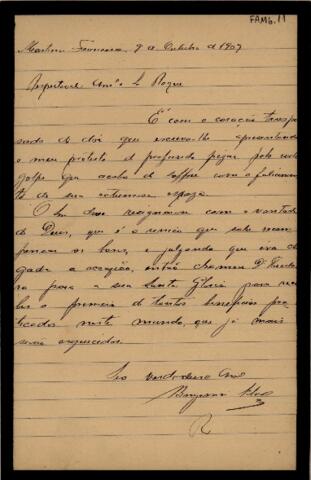 FAM6.11
Martim Francisco, 9 de Outubro de 1907
Respeitavel Amº L.
É com o coração
de dôr que escrevo-lhe apresentando
o meu protesto de profundo pezar pelo
golpe que acaba de soffrer com o fallecimen
to de sua extremosa esposa
resignar com a vontade
de Deus, que é o unico que sabe
os bons, e julgando que era che
gada a occasião, então chamou D.
ra para a sua Santa Gloria para rece
ber o premio de tantos beneficios pra
ticados neste mundo, que já mais
serão esquecidos.
Seo verdadeiro Amº
Benjamin